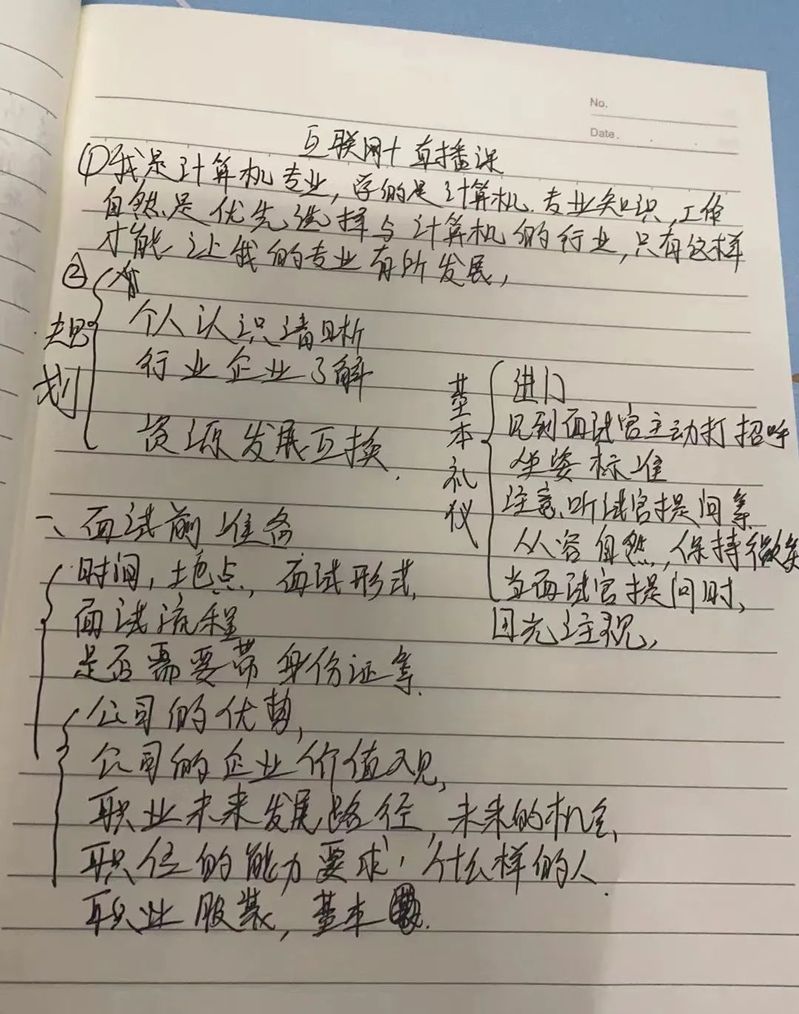 No.
Date.
互联网+直播课
①我是计算机专业,学的是计算机专业知识,工作
自然是优先选择与计算机的行业,只有这样
才能让我的专业有所发展,
②
规划
个人认识清晰
行业企业了解
资源发展互换.
基本礼仪
进门
见到面试官主动打招呼
坐姿标准
注意听试官提问等
从容自然,保持微笑
当面试官提问时,
目光注视,
一、面试前准备
时间,地点,面试形式,
面试流程
是否需要带身份证等.
公司的优势,
公司的企业价值观,
职业未来发展路径,未来的机会,
职位的能力要求,什么样的人.
职业服装,基本